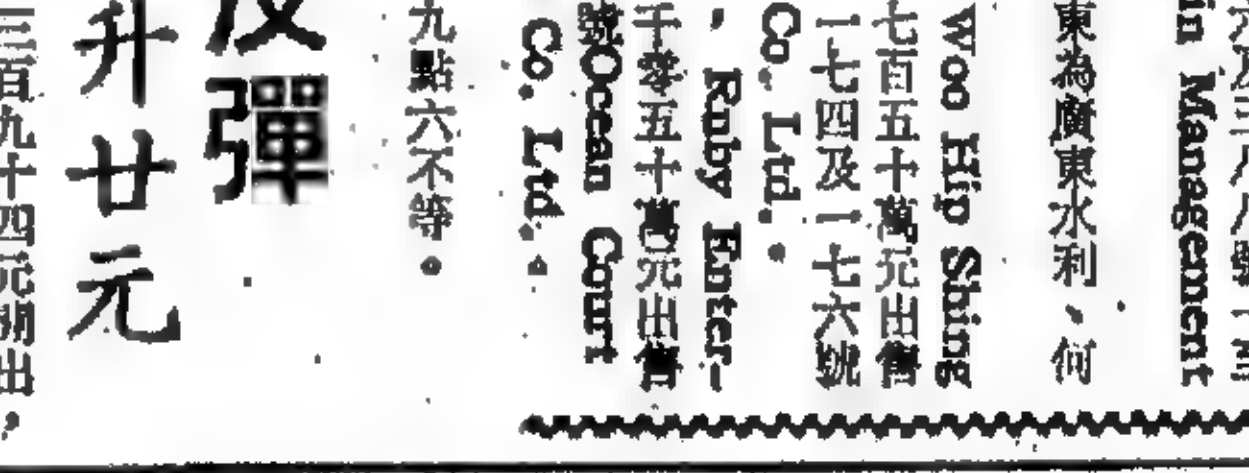 in Management
東為廣東水利、何
Woo Hip Shing
七百五十萬元出售
一七四及一七六號
Co. Ltd.。
，Ruby Enter-
千零五十萬元出售
號Ocean Court
Co. Ltd.。
九點六不等。
反彈
升廿元
三百九十四元開出，